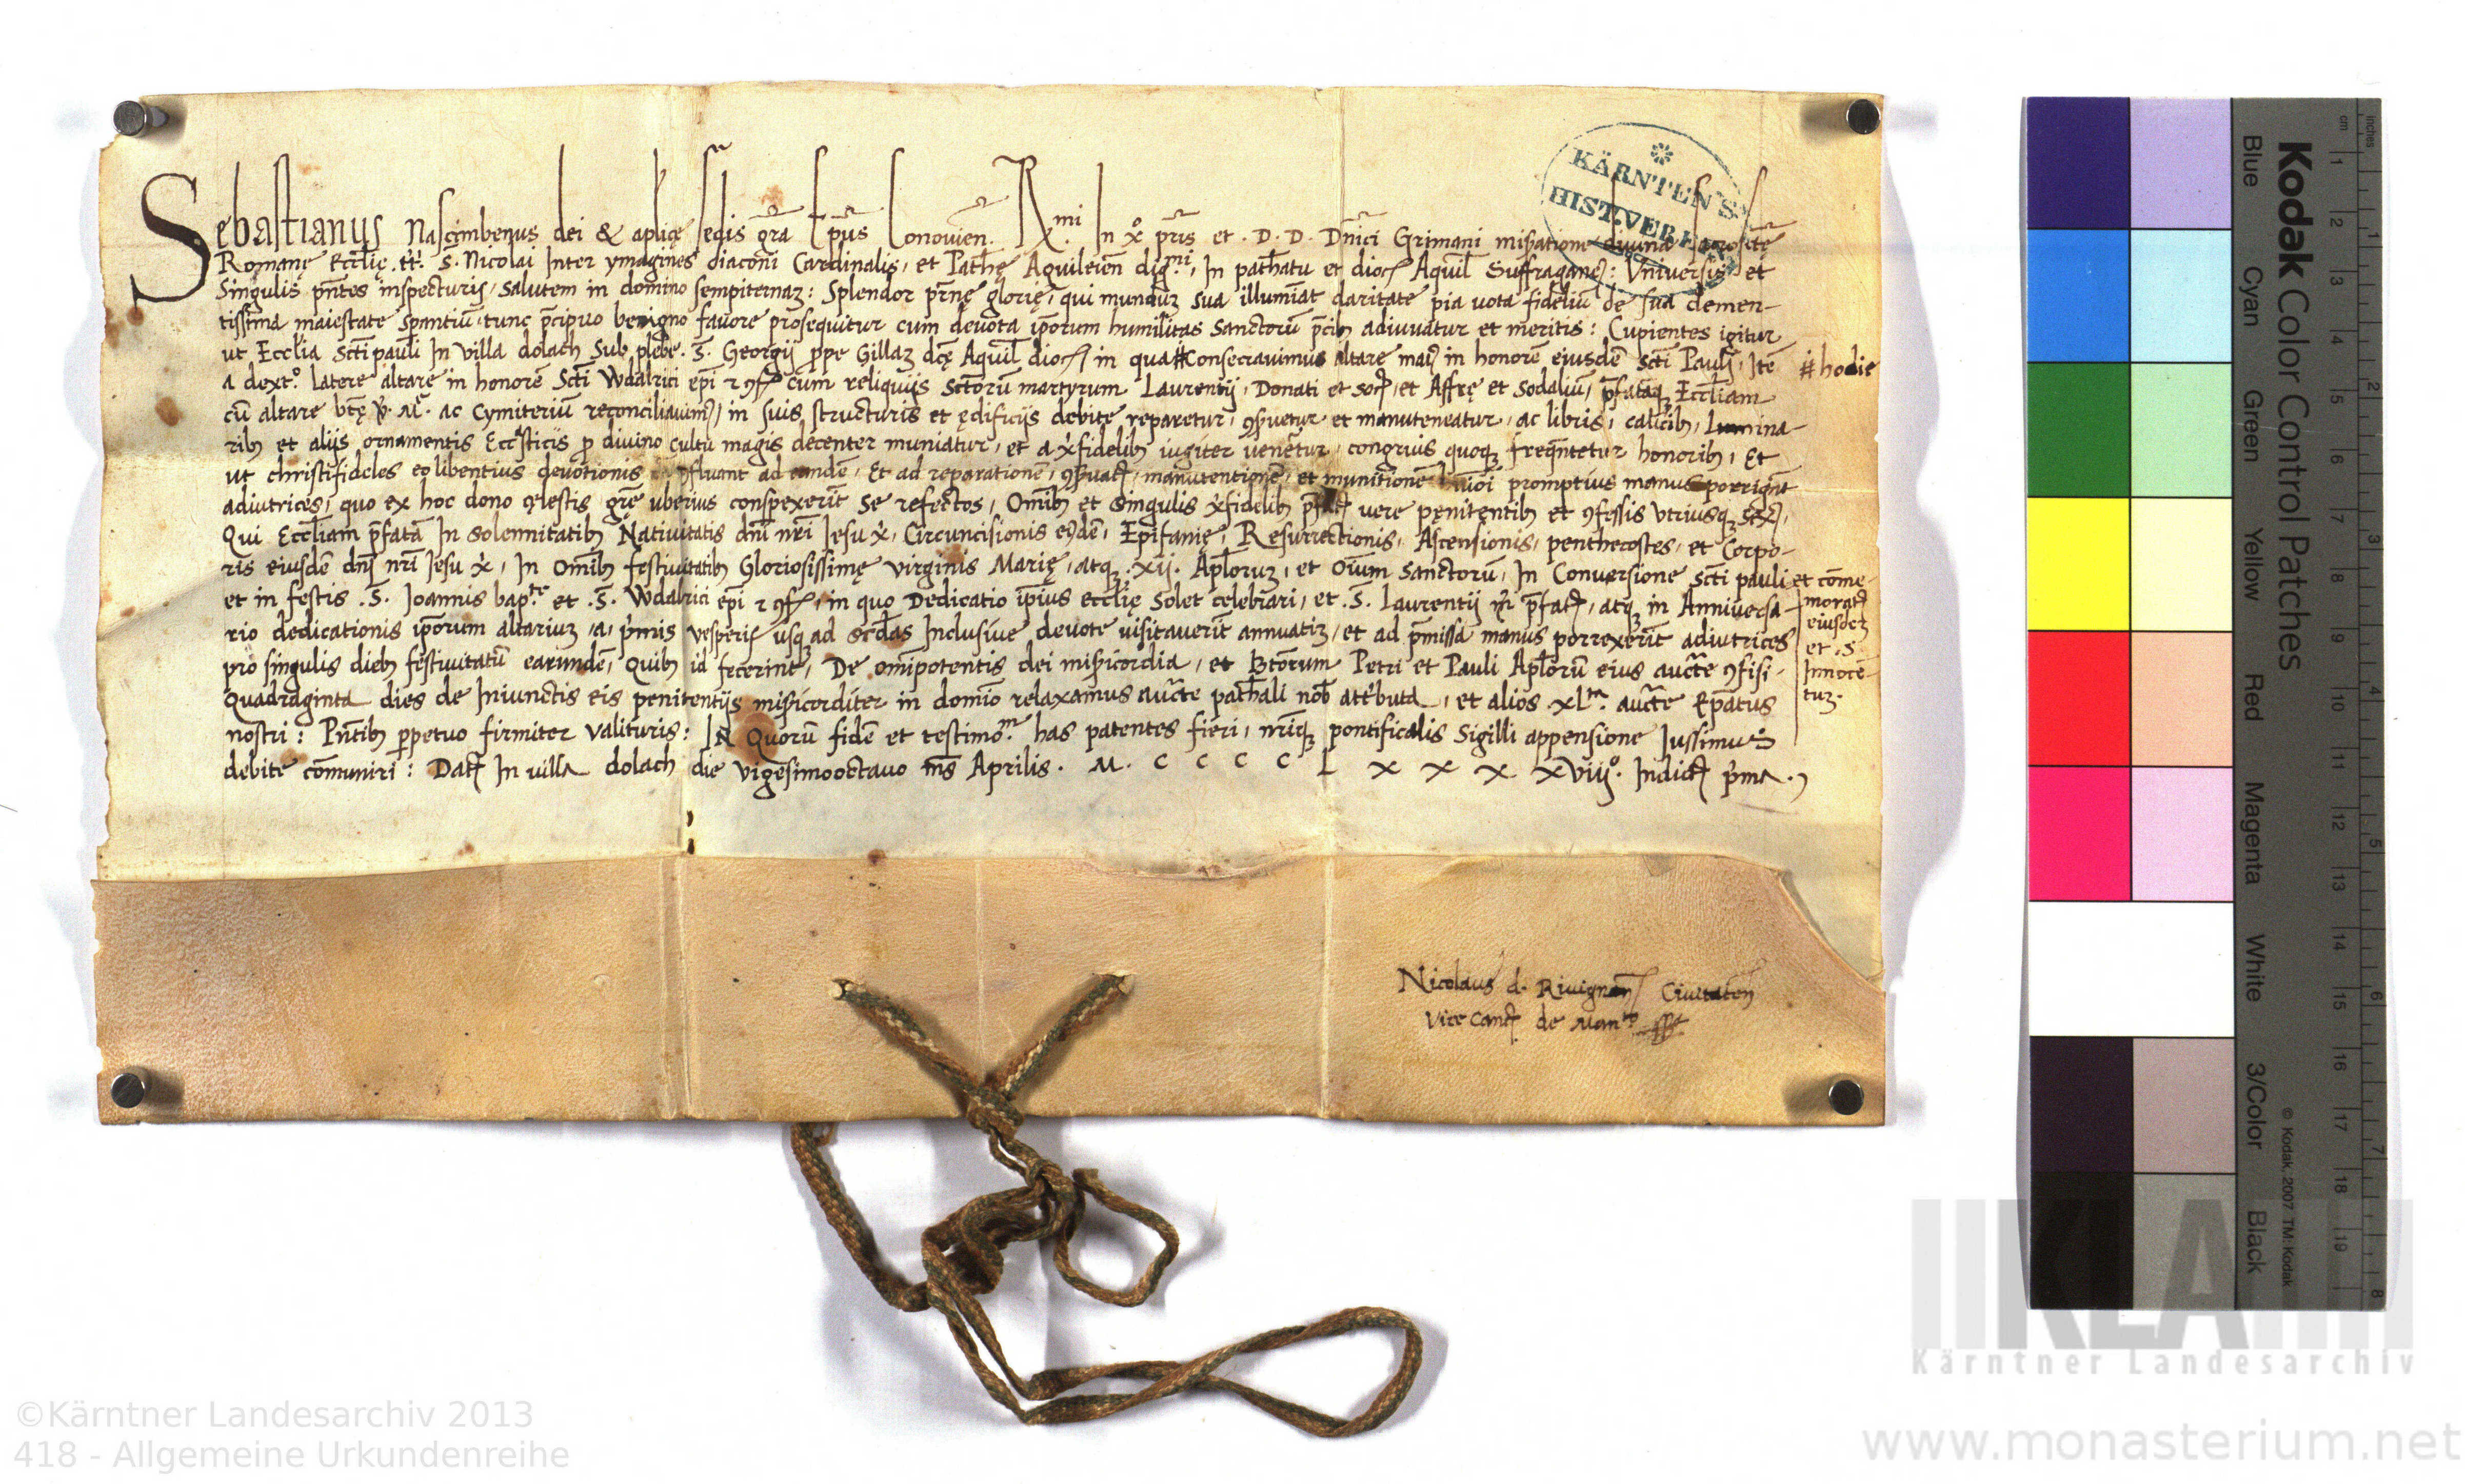 Sebastianus Nascimbenus dei & aplicę sedis grã Epũs Conouien. R.mi In xº pr̃is et . D. D. Dñici Grimani misatione diuina sacrosctę
Romanę Eccłię tt̃. S. Nicolai Inter ymagines diaconi Cardinalis, et Patħę Aquileień dig.mi, In patħatu et dioc̃ Aquil̃ Suffraganeꝰ : Vniuersis et
Singulis pñtes inspecturis, salutem in domino sempiternaʒ : Splendor pr̃nę glorię, qui mundũʒ sua illumiãt claritate pia uota fideliũ de sua clemen-
tissima maiestate sperantiũ, tunc p̃cipuo benigno fauore prosequitur cum deuota ip̃orum humilitas sanctorũ p̃cibꝫ adiuuatur et meritis : Cupientes igitur
ut Ecclia Scti pauli In villa dolach sub plebe . S. Georgij ꝓpe Gillaʒ dcę Aquil̃ dioc̃ in qua # Consecrauimus altare maiꝰ in honorẽ eiusdẽ Scti Pauli, Itẽ # hodie
a dextº latere altare in honorẽ Scti Wdalrici ep̃i ⁊ ꝯf. cum reliquijs Sctorũ martyrum Laurentij, Donati et soc̃, et Affrę et sodaliũ, p̃fatãqꝫ Eccłiam
cũ altare btę V. M. ac Cymiteriũ reconciliauimꝰ, in suis structuris et ędificijs debite reparetur, ꝯseruetur et manuteneatur, ac libris, calicibꝫ, Lumina-
ribꝫ et alijs ornamentis Eccl̃sticijs ꝓ diuino cultu magis decenter muniatur, et a xp̃ifidelibꝫ iugiter uenẽtur, congruis quoqꝫ freqũtetur honoribꝫ, Et
ut christifideles eo libentius deuotionis ꝯfluant ad eandẽ, Et ad reparationẽ, ꝯseruatõ, manutentionẽ, et munitionẽ hmõi promptius manus porrigãt
adiutrices, quo ex hoc dono cęlestis gr̃e uberius conspexerĩt se refectos, Omĩbꝫ et singulis xp̃ifidelibꝫ p̃fatꝭ uere pęnitentibꝫ et ꝯfessis vtriusqꝫ sexꝰ,
Qui Eccłiam p̃fatã In solennitatibꝫ Natiuitatis dnĩ nrĩ Jesu xp̃i, Circuncisionis eiusdẽ, Epifanię, Resurrectionis, Ascensionis, penthecostes, et Corpo-
ris eiusdẽ dnĩ nrĩ Jesu xp̃i, In Omĩbꝫ festiuitatibꝫ Gloriosissimę virginis Marię, atqꝫ .xij. Aplõruʒ, et Oĩum sanctorũ, In Conuersione Scti pauli et cõme-
et in festis . S. Joannis bap.te et . S. Wdalrici ep̃i ⁊ ꝯf., in quo Dedicatio ip̃ius ecclię solet celebrari, et . S. Laurentij m̃r p̃fatꝭ, atqꝫ in Anniuersa- moratꝭ
eiusdeʒ
rio dedicationis ip̃orum altariuʒ, a p̃mis vesperis usqꝫ ad scđas Inclusiue deuote uisitauerĩt annuatiʒ, et ad p̃missa manus porrexerĩt adiutrices et . S.
pro singulis diebꝫ festiuitatũ earundẽ, Quibꝫ id fecerint, De omĩpotentis dei misericordia, et Btõrum Petri et Pauli Aplõrũ eius auctẽ ꝯfisi. Innocẽ-
Quadraginta dies de Iniunctis eis penitentijs misericorditer in domĩo relaxamus auctẽ patħali nob̃ attributa, et alios xL.ta auctẽ Ep̃atus tuʒ.
nostri : Pñtibꝫ perpetuo firmiter valituris : IN Quorũ fidẽ et testimo.m has patentes fieri, nr̃iqꝫ pontificalis Sigilli appensione Jussimus
debite cõmuniri : Datꝭ In uilla dolach die vigesimooctauo ms̃ Aprilis . M. C C C C L X X X XViijº. Indictꝭ p̃ma .
Nicolaus d. Riuignanꝰ Ciuitateñ
Vice Cancꝭ de Manto
KÄRNTEN'S
HIST. VEREIN
Kodak Color Control Patches
Blue Cyan Green Yellow Red Magenta White 3/Color Black
© Kodak, 2007 TM: Kodak
inches 1 2 3 4 5 6 7 8
cm 1 2 3 4 5 6 7 8 9 10 11 12 13 14 15 16 17 18 19
KLA
Kärntner Landesarchiv
©Kärntner Landesarchiv 2013
418 - Allgemeine Urkundenreihe
www.monasterium.net